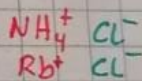 NH₄⁺ Cl⁻
Rb⁺ Cl⁻